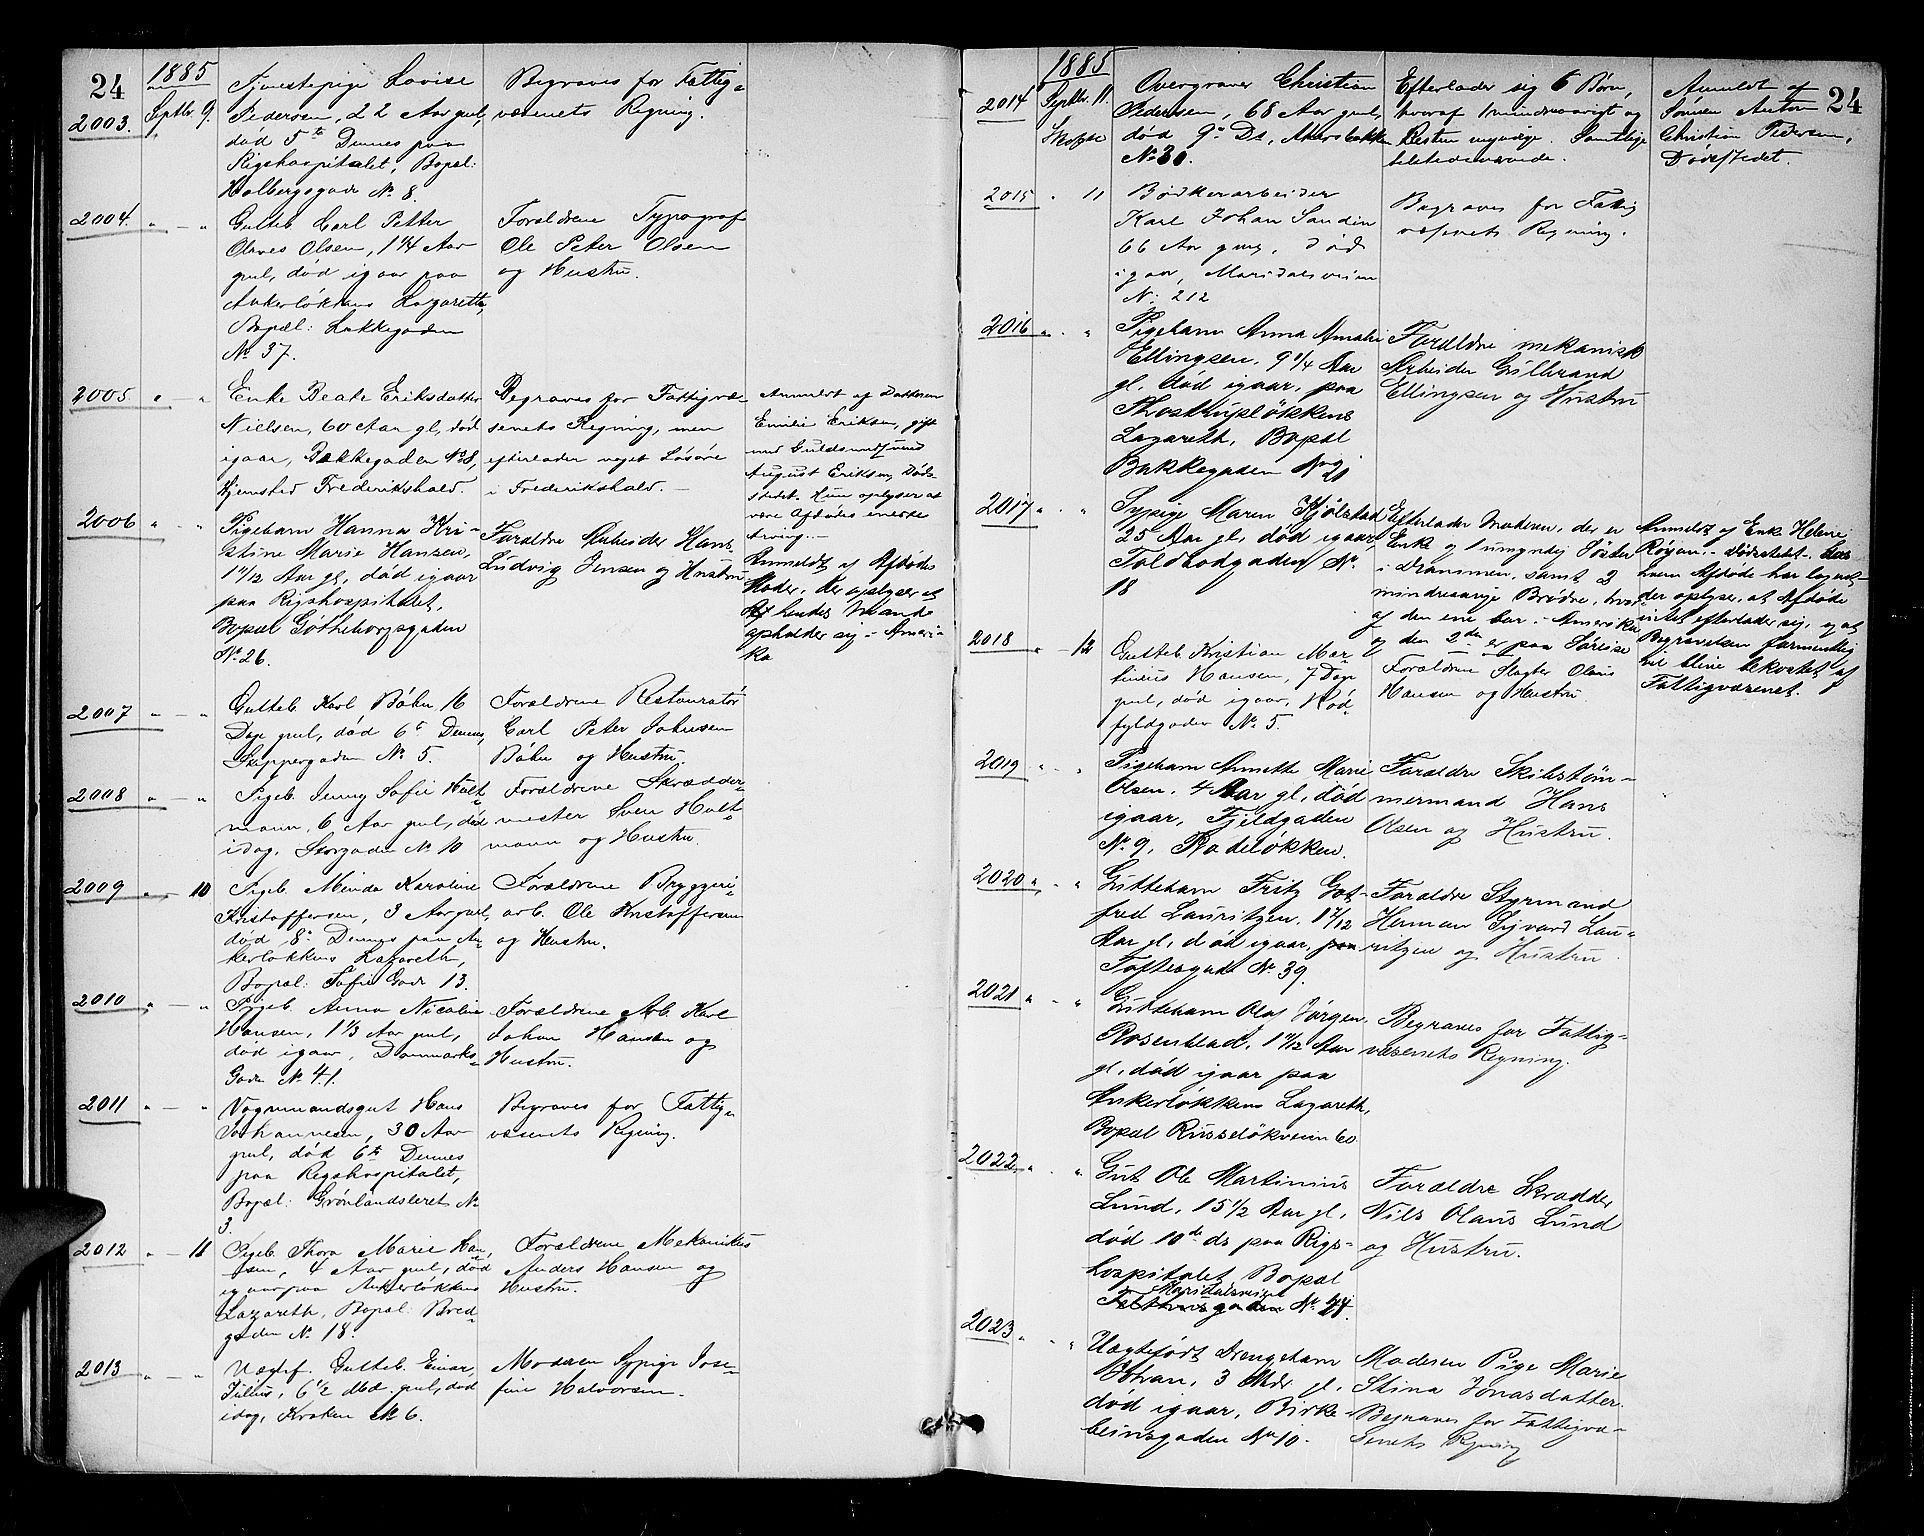 24
1885
2003. Septbr. 9.
Tjenestepige Lovise
Pedersen, 22 Aar gul,
død 5te Dennes paa
Rigshospitalet, Bopæl:
Holbergsgade No 8.
Begraves for Fattig-
væsenets Regning.
2004. " — "
Gutteb. Carl Petter
Olaves Olsen, 1 1/4 Aar
gul, død igaar paa
Ankerløkkens Lazareth,
Bopæl: Lakkegaden
No 37.
Forældrene Typograf
Ole Peter Olsen
og Hustru.
2005. " — "
Enke Beate Eriksdatter
Nielsen, 60 Aar gl, død
igaar, Bakkegaden No 28,
Hjemsted Frederikshald.
Begraves for Fattigvæ-
senets Regning, men
efterlader noget Løsøre
i Frederikshald. —
Anmeldt af Datteren
Emilie Eriksen, gift
med Guldsmedsvend
August Eriksen, Døds-
stedet. Hun oplyser at
være Afdødes eneste
Arving. —
2006 " "
Pigebarn Hanna Kri-
stine Marie Hansen,
1 11/12 Aar gl, død igaar
paa Rigshospitalet,
Bopæl Götheborgsgaden
No 26.
Forældre Arbeider Hans
Ludvig Jensen og Hustru
Anmeldt af Afdødes
Moder, der oplyser at
hendes Mand
opholder sig i Ameri-
ka
2007 " — "
Gutteb. Karl Böhn 16
Dage gul, død 6te Dennes,
Grüppergaden No 5.
Forældrene Restauratör
Carl Peter Johnsen
Böhn og Hustru.
2008 " — "
Pigeb. Jenny Sofie Hult-
mann, 6 Aar gul, død
idag, Storgaden No 10
Forældrene Skrædder-
mester Sven Hult-
mann og Hustru
2009 " — 10
Pigeb. Minda Karoline
Kristoffersen, 3 Aar gul,
død 8de Dennes paa An-
kerløkkens Lazareth,
Bopæl: Sofie Gade 13.
Forældrene Bryggeri-
arb. Ole Kristoffersen
og Hustru.
2010 " — "
Pigeb. Anna Nicoline
Hansen, 1 1/3 Aar gul,
død igaar, Danmarks-
Gade No 41.
Forældrene Arb. Karl
Johan Hansen og
Hustru.
2011 " — "
Vognmandsgut Hans
Johannesen, 30 Aar
gul, død 6te Dennes
paa Rigshospitalet,
Bopæl: Grønlandsleret No
3.
Begraves for Fattig-
væsenets Regning.
2012 " — 11
Pigeb. Thora Marie Han-
sen, 4 Aar gul, død
igaar paa Ankerløkkens
Lazareth, Bopæl: Bred-
gaden No 18.
Forældrene Mekanikus
Anders Hansen og
Hustru.
2013 " — "
Uægtef. Gutteb. Einar
Julius, 6 1/2 Md. gul, død
idag, Kroken No 6.
Moderen Sypige Jose-
fine Halvorsen.
24
1885
2014 Septbr. 11.
Skifte
Overgraver Christian
Pedersen, 68 Aar gul,
død 9de Ds, Akersbakken
No 30.
Efterlader sig 6 Børn,
hvoraf 1 mindreaarigt og
Resten myndige. Samtlige
tilstedeværende.
Anmeldt af
Sønnen Anton
Christian Pedersen,
Dødsstedet.
2015 " 11
Bødkerarbeider
Karl Johan Sandin
66 Aar gml, død
igaar, Maridalsveien
No 212
Begraves for Fattig
væsenets Regning.
2016 " "
Pigebarn Anna Amalie
Ellingsen, 9 1/4 Aar
gl, død igaar, paa
Throstrupløkkens
Lazareth, Bopæl
Bakkegaden No 21
Forældre mekanisk
Arbeider Gulbrand
Ellingsen og Hustru
2017 " "
Sypige Maren Kjølstad
25 Aar gl, død igaar,
Toldbodgaden No
18
Efterlader Moderen, der er
Enke og 1 umyndig Søster
i Drammen, samt 2
mindreaarige Brødre, hvor-
af den ene bor i Amerika
og den 2den er paa Søreise
Anmeldt af Enke Helene
Røyan. — Dødsstedet. — hos
hvem Afdøde har logeret
der oplyser, at Afdøde
intet efterlader sig, og at
Begravelsen formentlig
vil blive bekostet af
Fattigvæsenet.
2018 " — 12
Gutteb. Kristian Mar-
tinius Hansen, 7 Dage
gul, død igaar, Rød-
fyldgaden No 5.
Forældrene Slagter Olaus
Hansen og Hustru
2019 " "
Pigebarn Annette Marie
Olsen, 4 Aar gl, død
igaar, Fjeldgaden
No 9, Rodeløkken.
Forældre Skibstøm-
mermand Hans
Olsen og Hustru.
2020 " "
Guttebarn Fritz Got-
fred Lauritzen, 1 7/12
Aar gl, død igaar, paa
Toftesgade No 39.
Forældre Styrmand
Herman Sigvard Lau-
ritzen og Hustru.
2021 " "
Guttebarn Olaf Jørgen
Rosenblad, 1 11/12 Aar
gl, død igaar paa
Ankerløkkens Lazareth,
Bopæl Russeløkveien 60
Begraves for Fattig-
væsenets Regning.
2022 " "
Gut Ole Martinius
Lund, 15 1/2 Aar gl,
død 10de ds paa Rigs-
hospitalet Bopæl
Maridalsveien
No 24.
Forældre Skrædder
Nils Olaus Lund
og Hustru.
2023 " "
Uægtefødt Drengebarn
Johan, 3 Mdr gl.
død igaar, Birke-
beinsgaden No 10.
Moderen Pige Marie
Stina Jonasdatter.
Begraves for Fattigvæ-
senets Regning